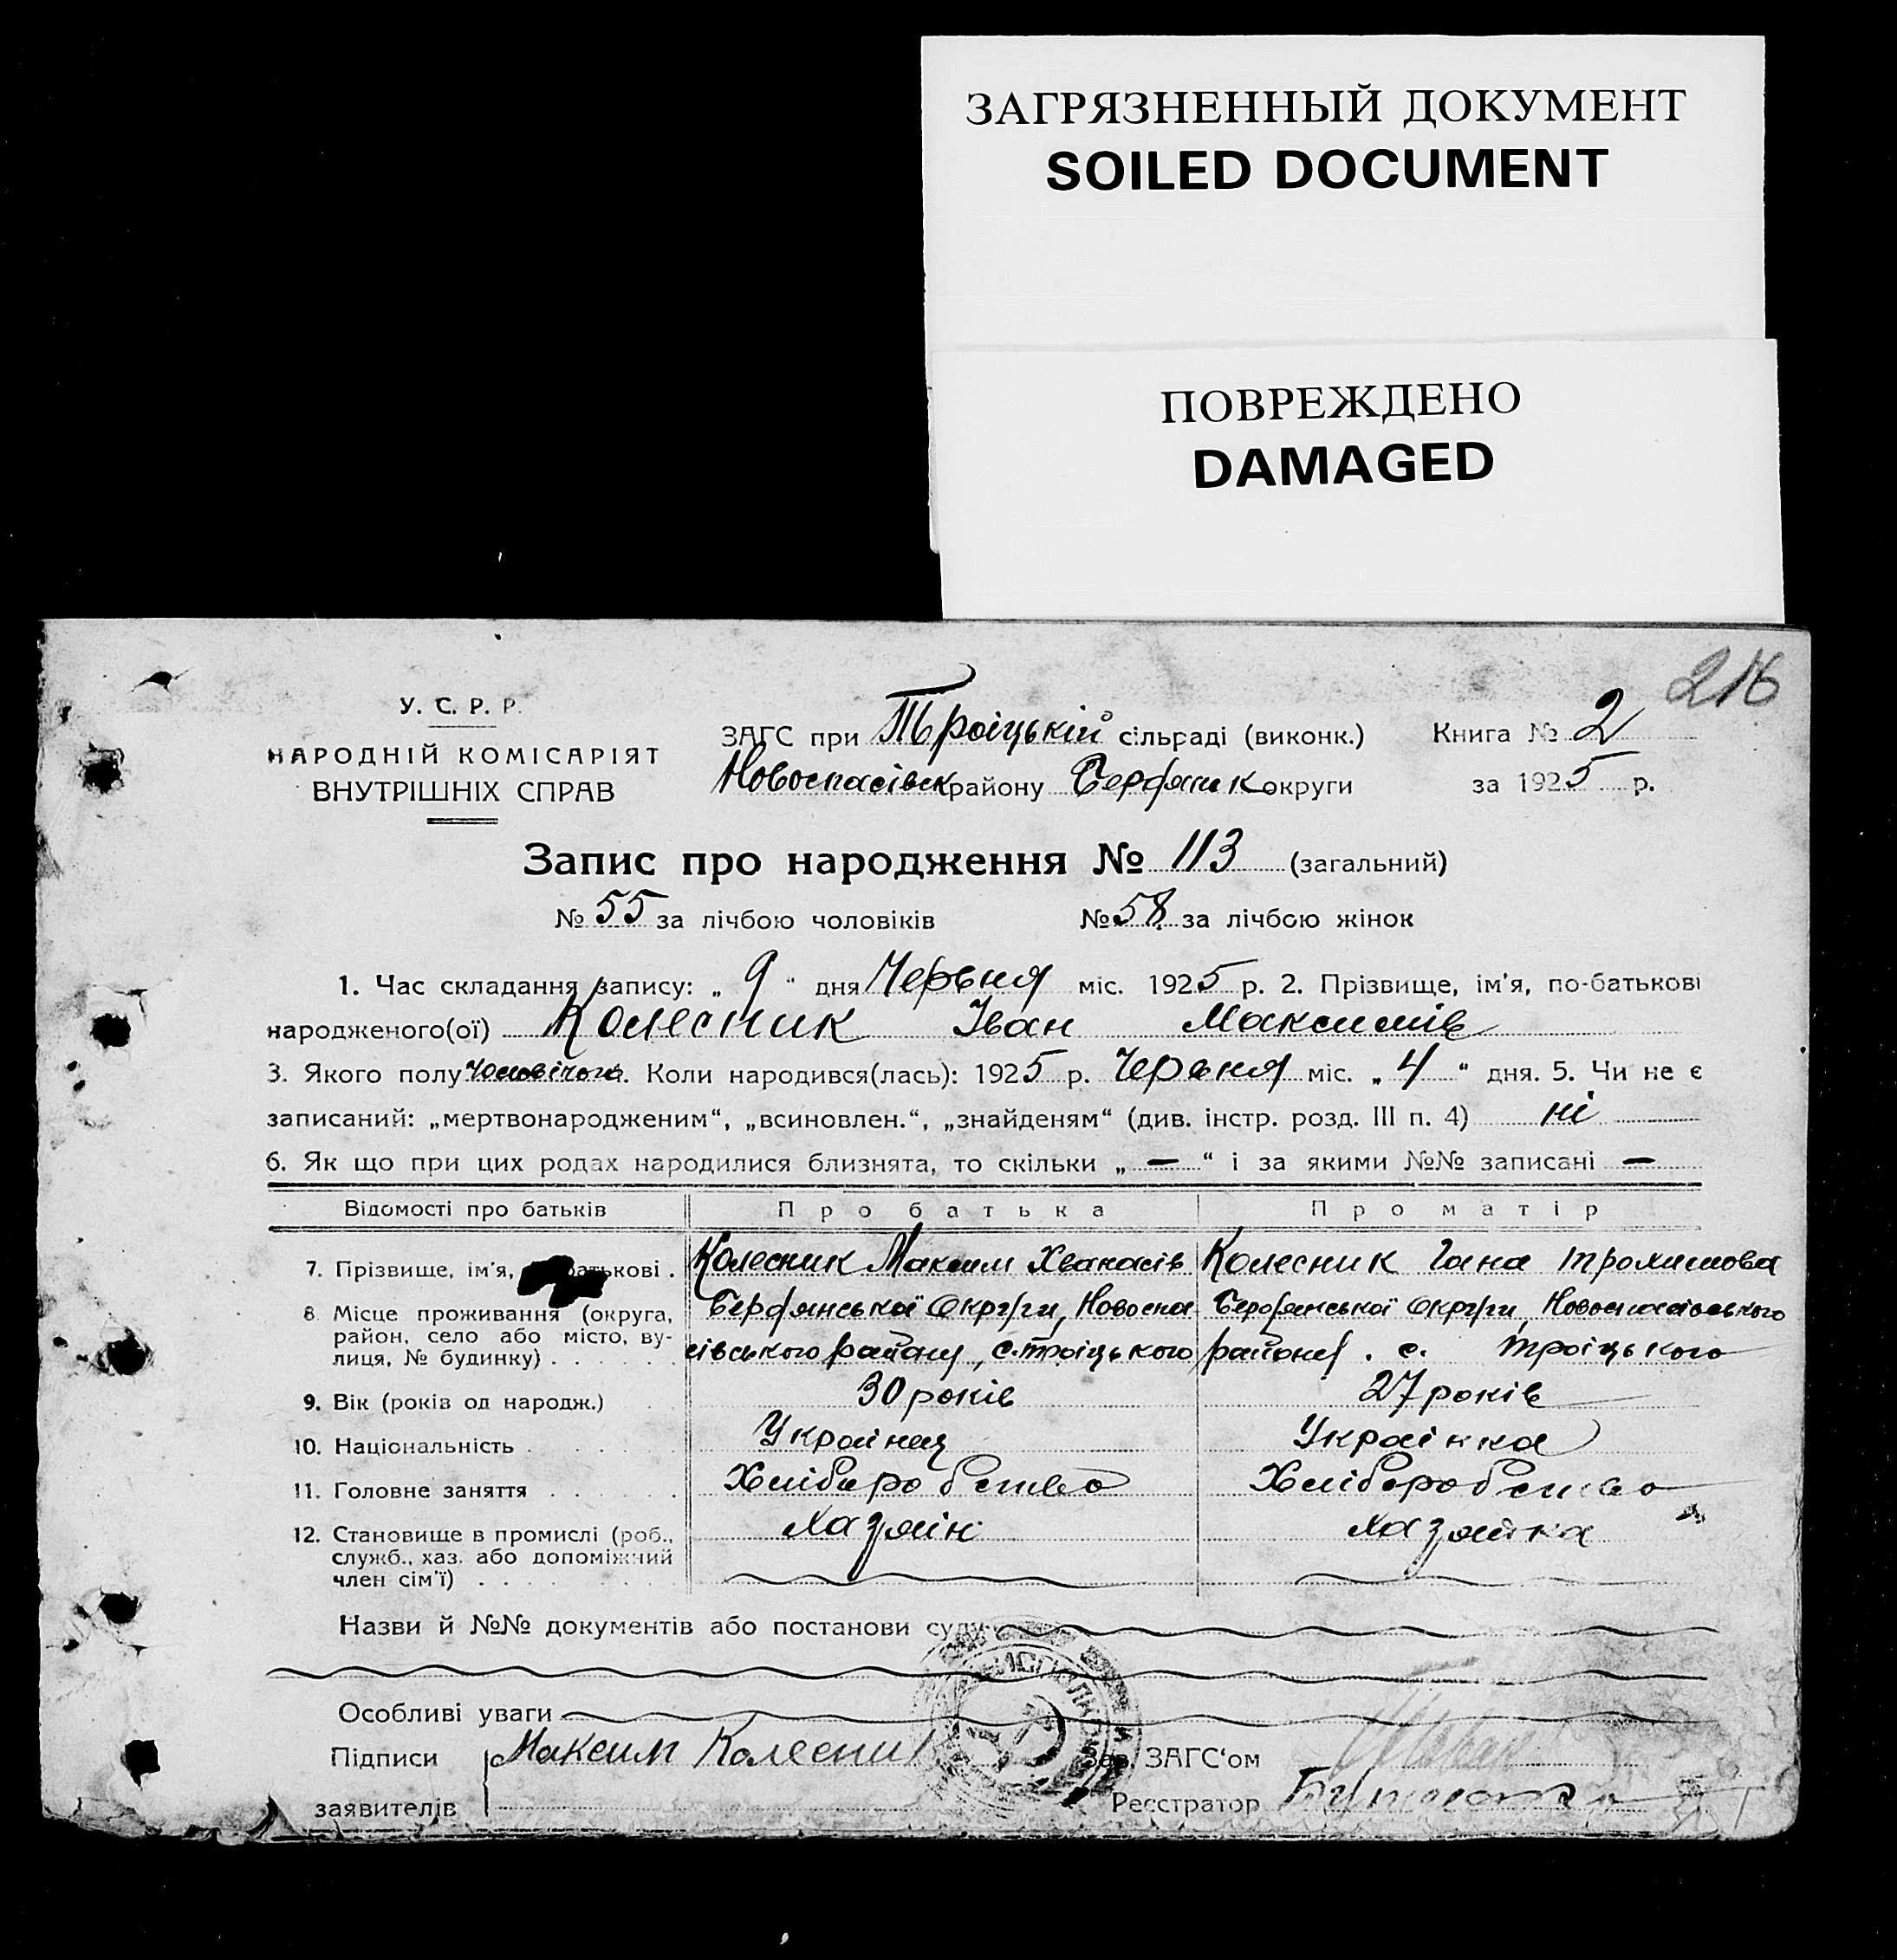 ЗАГРЯЗНЕННЫЙ ДОКУМЕНТ
SOILED DOCUMENT
ПОВРЕЖДЕНО
DAMAGED
216
У. С. Р. Р.
НАРОДНІЙ КОМІСАРІЯТ
ВНУТРІШНІХ СПРАВ
ЗАГС при Троіцькій сільраді (виконк.) Книга № 2
Новоспасівск району Бердянск округи за 1925 р.
Запис про народження № 113 (загальний)
№ 55 за лічбою чоловіків № 58 за лічбою жінок
1. Час складання запису: „ 9 “ дня Червня міс. 1925 р. 2. Прізвище, ім'я, по-батькові
народженого(ої) Колесник Іван Максимів
3. Якого полу чоловічого. Коли народився(лась): 1925 р. Червня міс. „ 4 “ дня. 5. Чи не є
записаний: „мертвонародженим“, „всиновлен.“, „знайденям“ (див. інстр. розд. III п. 4) ні
6. Як що при цих родах народилися близнята, то скільки „ — “ і за якими №№ записані —
Відомості про батьків Про батька Про матір
7. Прізвище, ім'я, батькові . Колесник Максим Хванасів Колесник Гана Трохимова
8. Місце проживання (округа, район, село або місто, вулиця, № будинку) . . . . . .
Бердянської Округи, Новоспасівського району, с. Троіцького
Бердянської Округи, Новоспасівського району. с. Троіцького
9. Вік (років од народж.) 30 років 27 років
10. Національність . Украінец Украінка
11. Головне заняття . . . . . . Хліборобство Хліборобство
12. Становище в промислі (роб., Хазяін Хазяйка
служб., хаз. або допоміжний
член сім'ї) . . . .
Назви й №№ документів або постанови суду
Особливі уваги
Підписи Максим Колесник Зав. ЗАГС'ом
заявителів Реєстратор